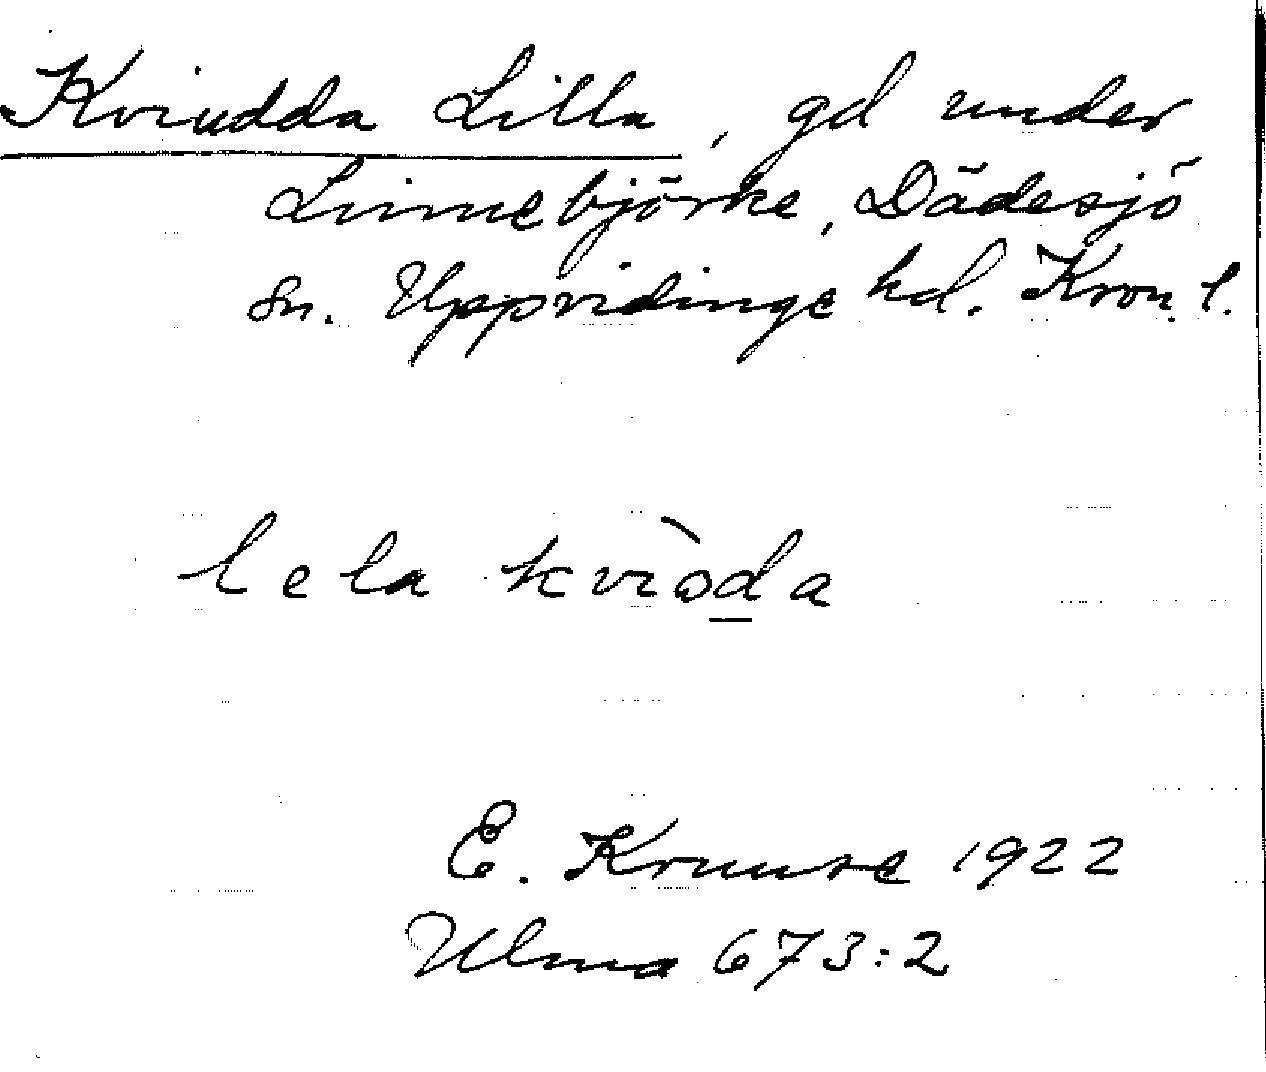 Kviudda Lilla, gd under
Linnebjörke, Dädesjö
sn. Uppvidinge hd. Kron. l.
lela kvìɔda
E. Kruuse 1922
Ulma 673:2